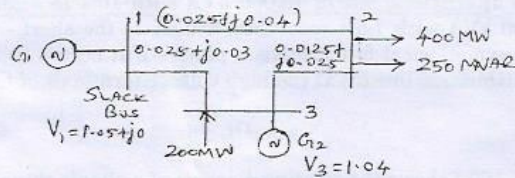 1 (0.025+j0.04) 2
G1 ~
400 MW
0.025+j0.03
0.0125+
j0.025
250 MVAR
SLACK
BUS
V1=1.05+j0
3
200MW
~ G2
V3=1.04